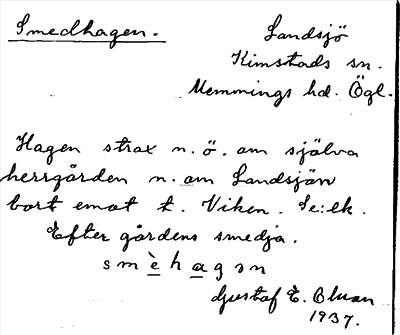 Smedhagen.
Landsjö
Kimstads sn.
Memmings hd. Ögl.
Hagen strax n.ö. om själva
herrgården n. om Landsjön
bort emot t. Viken. Se: ek.
Efter gårdens smedja.
smèhagən
Gustaf E. Olsson
1937.